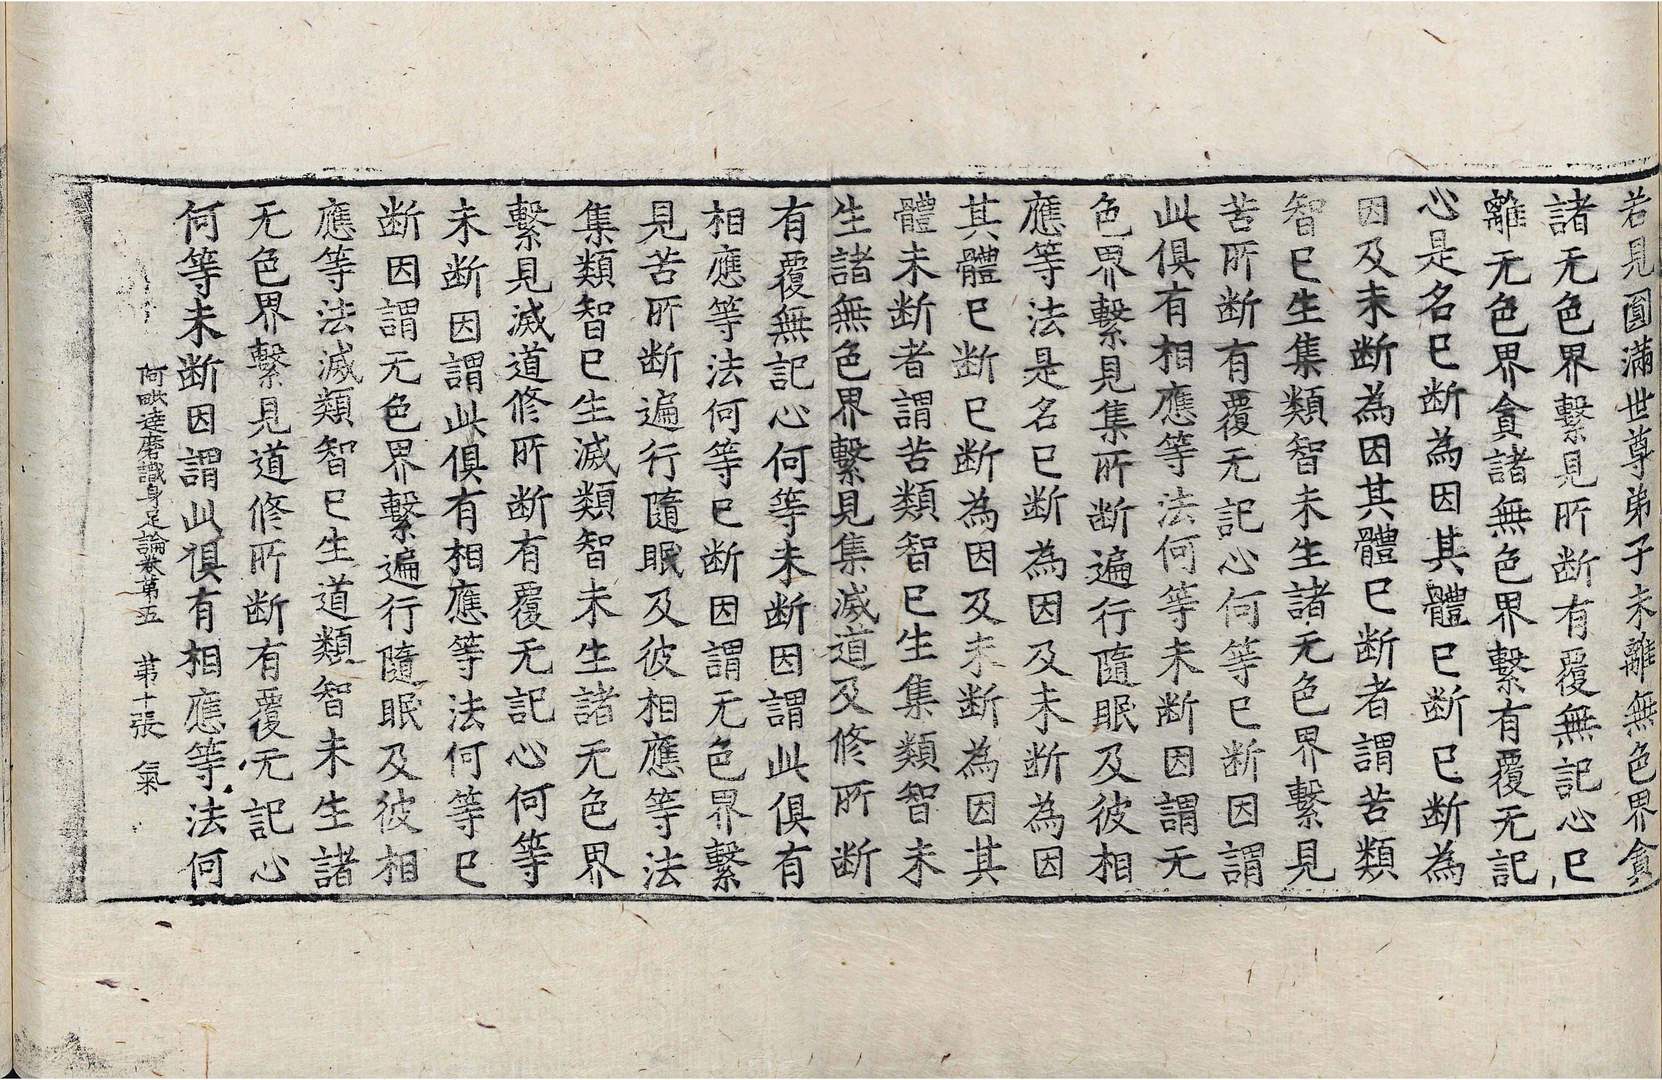 若見圓滿世尊弟子未離無色界貪
諸无色界繫見所断有覆無記心已
離无色界貪諸無色界繫有覆无記
心是名已断為因其體已断已断為
因及未断為因其體已断者謂苦類
智已生集類智未生諸无色界繫見
苦所断有覆无記心何等已断因謂
此俱有相應等法何等未断因謂无
色界繫見集所断遍行隨眠及彼相
應等法是名已断為因及未断為因
其體已断已断為因及未断為因其
體未断者謂苦類智已生集類智未
生諸無色界繫見集滅道及修所断
有覆無記心何等未断因謂此俱有
相應等法何等已断因謂无色界繫
見苦所断遍行隨眠及彼相應等法
集類智已生滅類智未生諸无色界
繫見滅道修所断有覆无記心何等
未断因謂此俱有相應等法何等已
断因謂无色界繫遍行隨眠及彼相
應等法滅類智已生道類智未生諸
无色界繫見道修所断有覆无記心
何等未断因謂此俱有相應等法何
阿毗達磨識身足論卷第五 第十張 氣